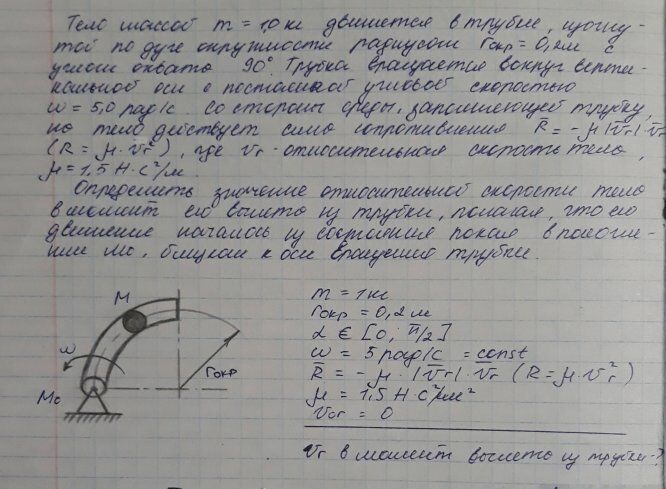 Тело массой m = 1,0 кг движется в трубке, изогну-
той по дуге окружности радиусом rокр = 0,2м с
углом охвата 90°. Трубка вращается вокруг верти-
кальной оси с постоянной угловой скоростью
ω = 5,0 рад/с. со стороны среды, заполняющей трубку,
на тело действует сила сопротивления R̄ = -μ|V̄r|·V̄r
(R = μ·Vr²), где Vr - относительная скорость тела,
μ = 1,5 Н·с²/м.
Определить значение относительной скорости тела
в момент его вылета из трубки, полагая, что его
движение началось из состояния покоя в положе-
нии M₀, близком к оси вращения трубки.
M
ω
rокр
M₀
m = 1кг
rокр = 0,2 м
α ∈ [0; π/2]
ω = 5 рад/с = const
R̄ = -μ·|V̄r|·Vr (R = μ·Vr²)
μ = 1,5 Н·с²/м²
Vor = 0
Vr в момент вылета из трубки-?